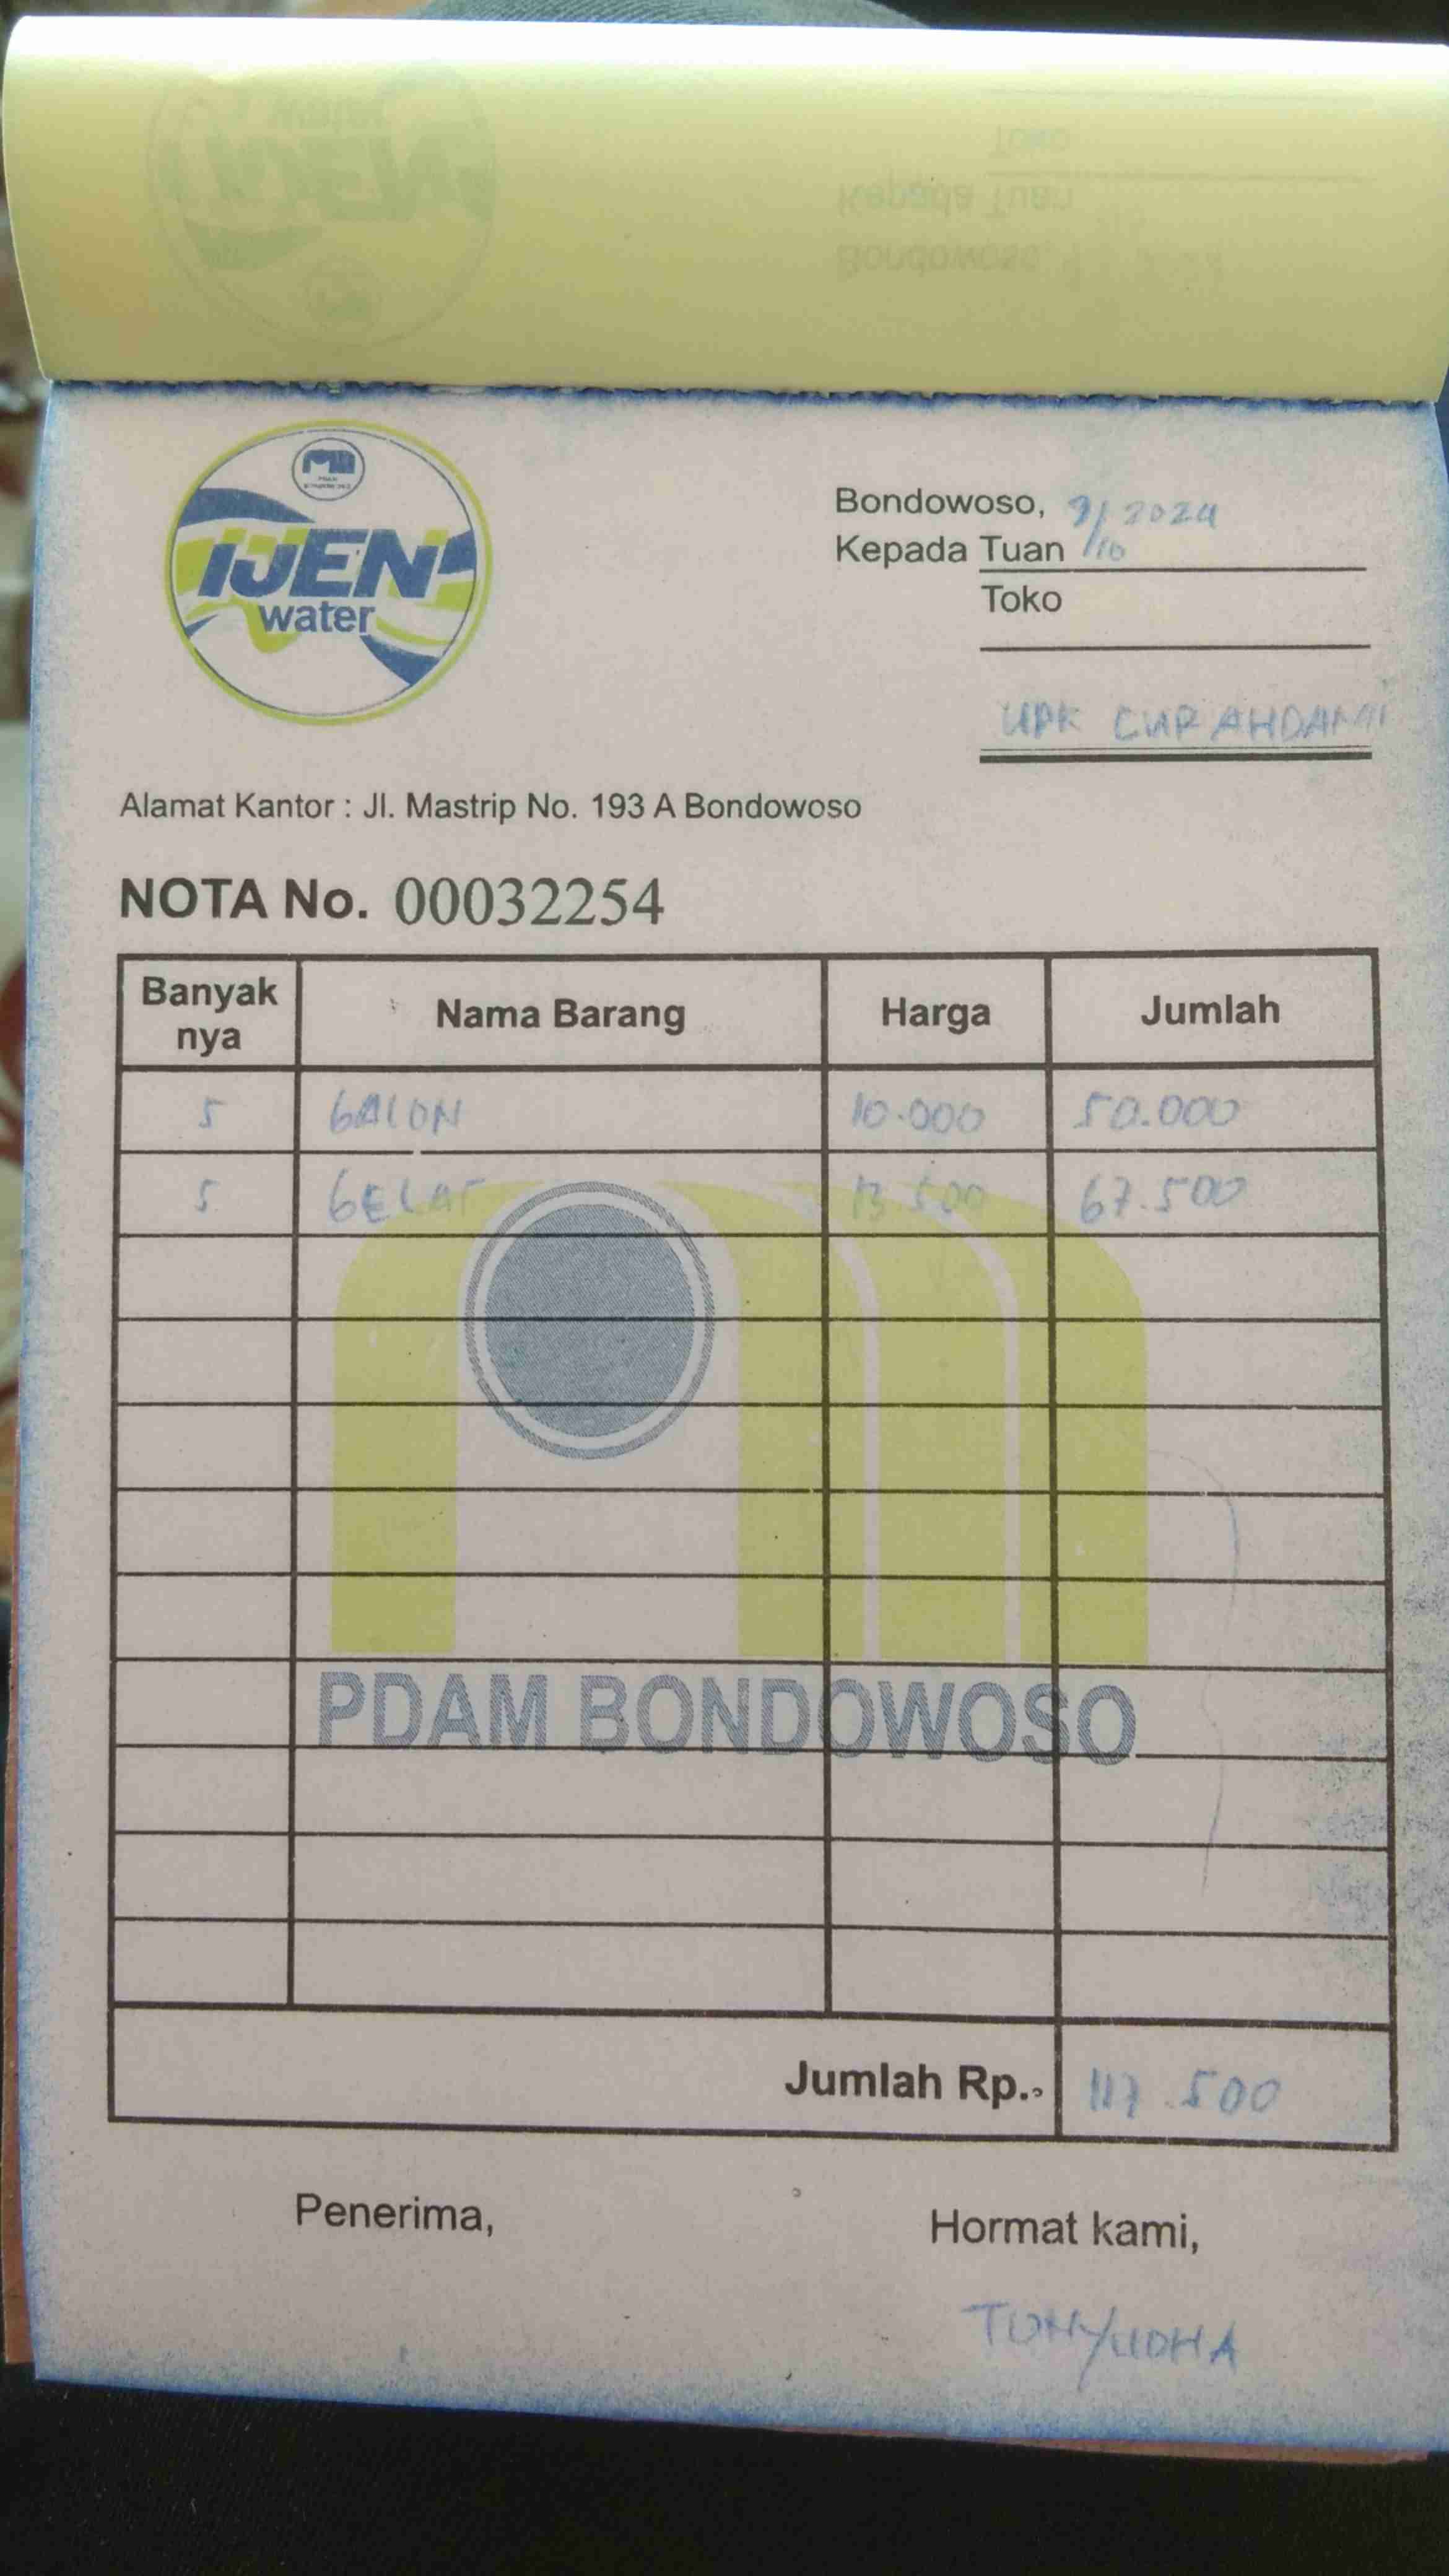 IJEN
water
Bondowoso, 9/10 2024
Kepada Tuan
Toko
UPK CURAHDAMI
Alamat Kantor : Jl. Mastrip No. 193 A Bondowoso
NOTA No. 00032254
Banyak nya Nama Barang Harga Jumlah
5 GALON 10.000 50.000
5 GELAS 13.500 67.500
PDAM BONDOWOSO
Jumlah Rp. 117.500
Penerima, Hormat kami,
TONY/UDHA